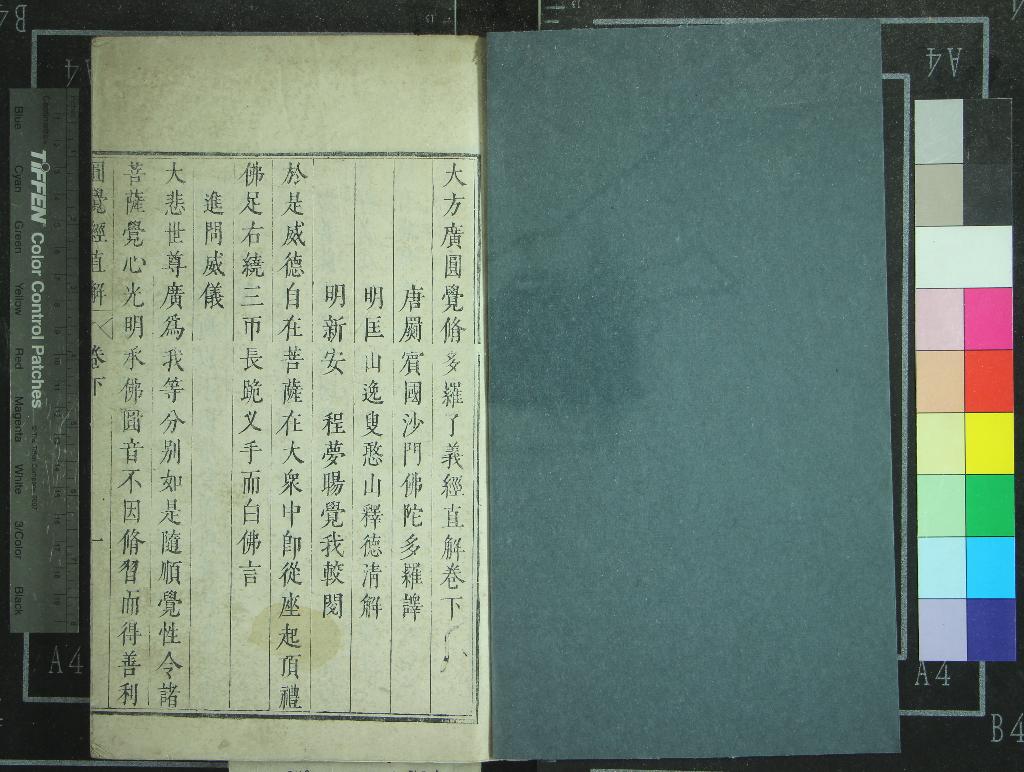 大方廣圓覺脩多羅了義經直解卷下
唐罽賓國沙門佛陀多羅譯
明匡山逸叟憨山釋德清解
明新安 程夢暘覺我較閱
於是威德自在菩薩在大衆中卽從座起頂禮
佛足右繞三帀長跪叉手而白佛言
進問威儀
大悲世尊廣爲我等分別如是隨順覺性令諸
菩薩覺心光明承佛圓音不因脩習而得善利
圓覺經直解 卷下 一
TIFFEN Color Control Patches
Blue Cyan Green Yellow Red Magenta White 3/Color Black
A4
A4
A4
A4
B4
B4